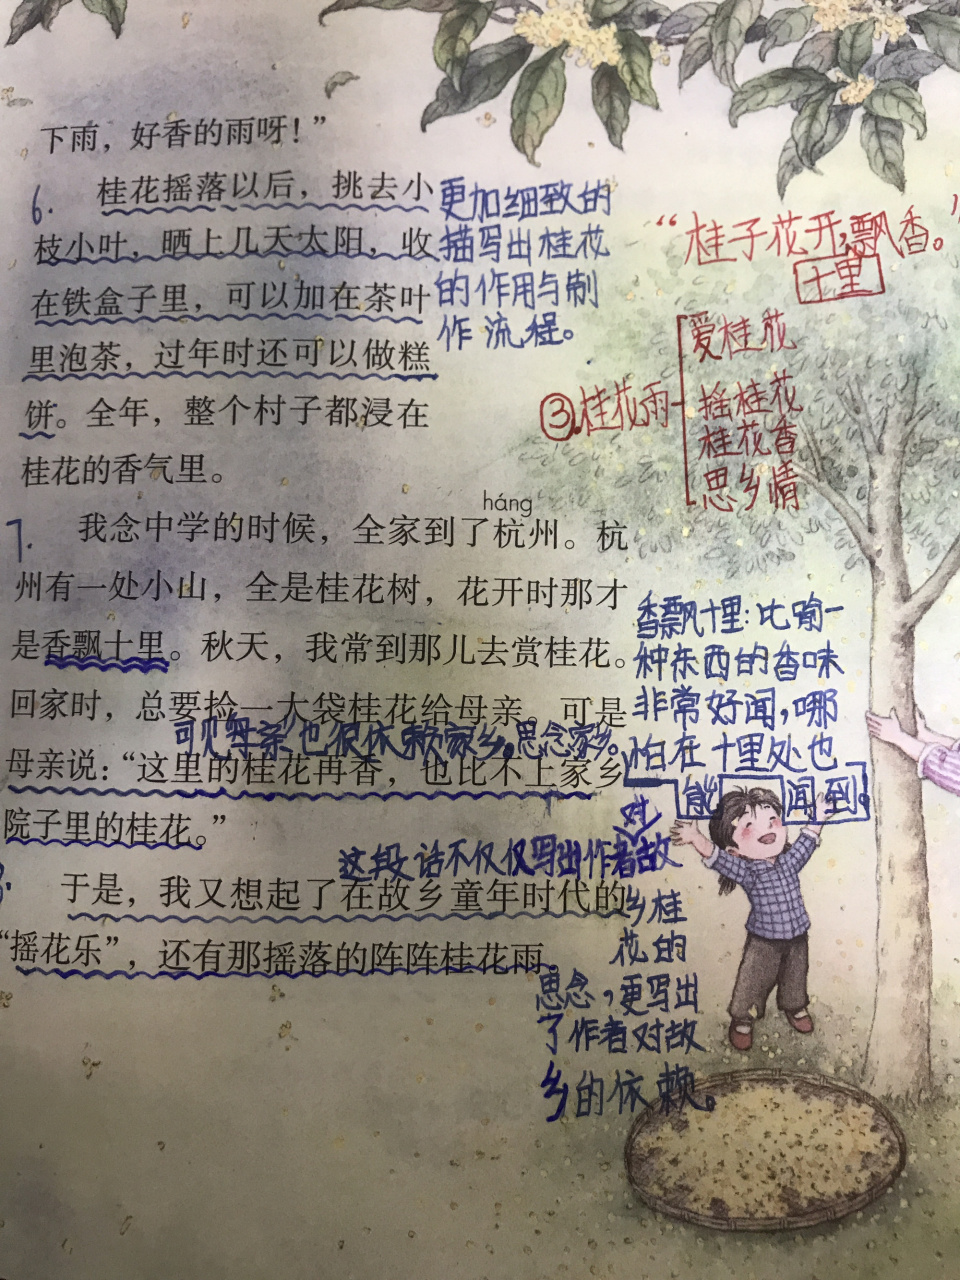 下雨，好香的雨呀！”
6.
桂花摇落以后，挑去小
枝小叶，晒上几天太阳，收
在铁盒子里，可以加在茶叶
里泡茶，过年时还可以做糕
饼。全年，整个村子都浸在
桂花的香气里。
更加细致的
描写出桂花
的作用与制
作流程。
“桂子花开，飘香。”
十里
③.桂花雨
爱桂花
摇桂花
桂花香
思乡情
háng
7.
我念中学的时候，全家到了杭州。杭
州有一处小山，全是桂花树，花开时那才
是香飘十里。秋天，我常到那儿去赏桂花。
回家时，总要捡一大袋桂花给母亲。可是
可见母亲也很依赖家乡。思念家乡。
母亲说：“这里的桂花再香，也比不上家乡
院子里的桂花。”
香飘十里：比喻一
种东西的香味
非常好闻，哪
怕在十里处也
能闻到。
对
这段话不仅仅写出作者故
乡桂
花的
思念，更写出
了作者对故
乡的依赖。
8.
于是，我又想起了在故乡童年时代的
“摇花乐”，还有那摇落的阵阵桂花雨。